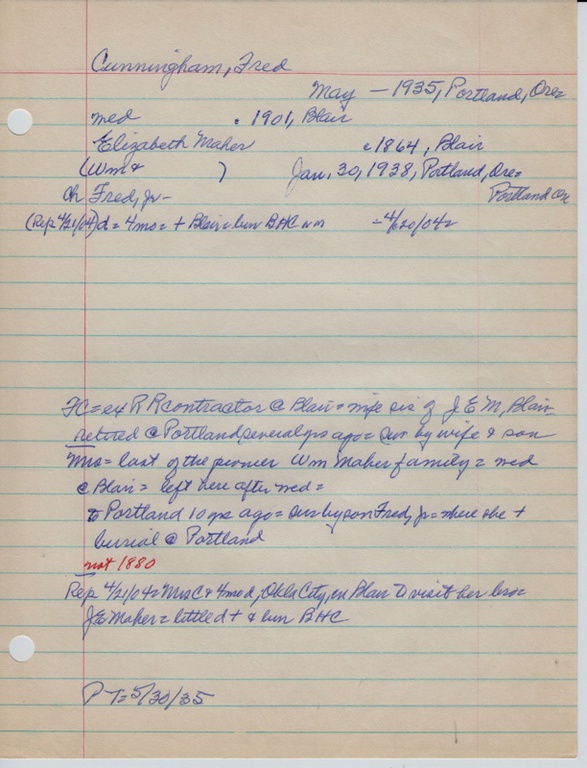 Cunningham, Fred
May - 1935, Portland, Ore=
med c 1901, Blair
Elizabeth Maher c 1864, Blair
(Wm & ) Jan. 30, 1938, Portland, Ore=
Portland Or
Ch Fred, Jr -
(Rep 4/21/04) d = 4 mo = + Blair & bur BHC =4/20/04=
FC = ex RR contractor @ Blair = wife sis of J.E.M, Blair
retired @ Portland several yrs ago = sur by wife & son
Mrs = last of the pioneer Wm Maher family = med
@ Blair = left here after med =
to Portland 10 yrs ago = sur by son Fred, Jr = where she +
burial @ Portland
not 1880
Rep 4/21/04 = Mrs C & 4 mo d, Okla City, in Blair to visit her bro =
JE Maher = little d + & bur BHC
PT = 5/30/35